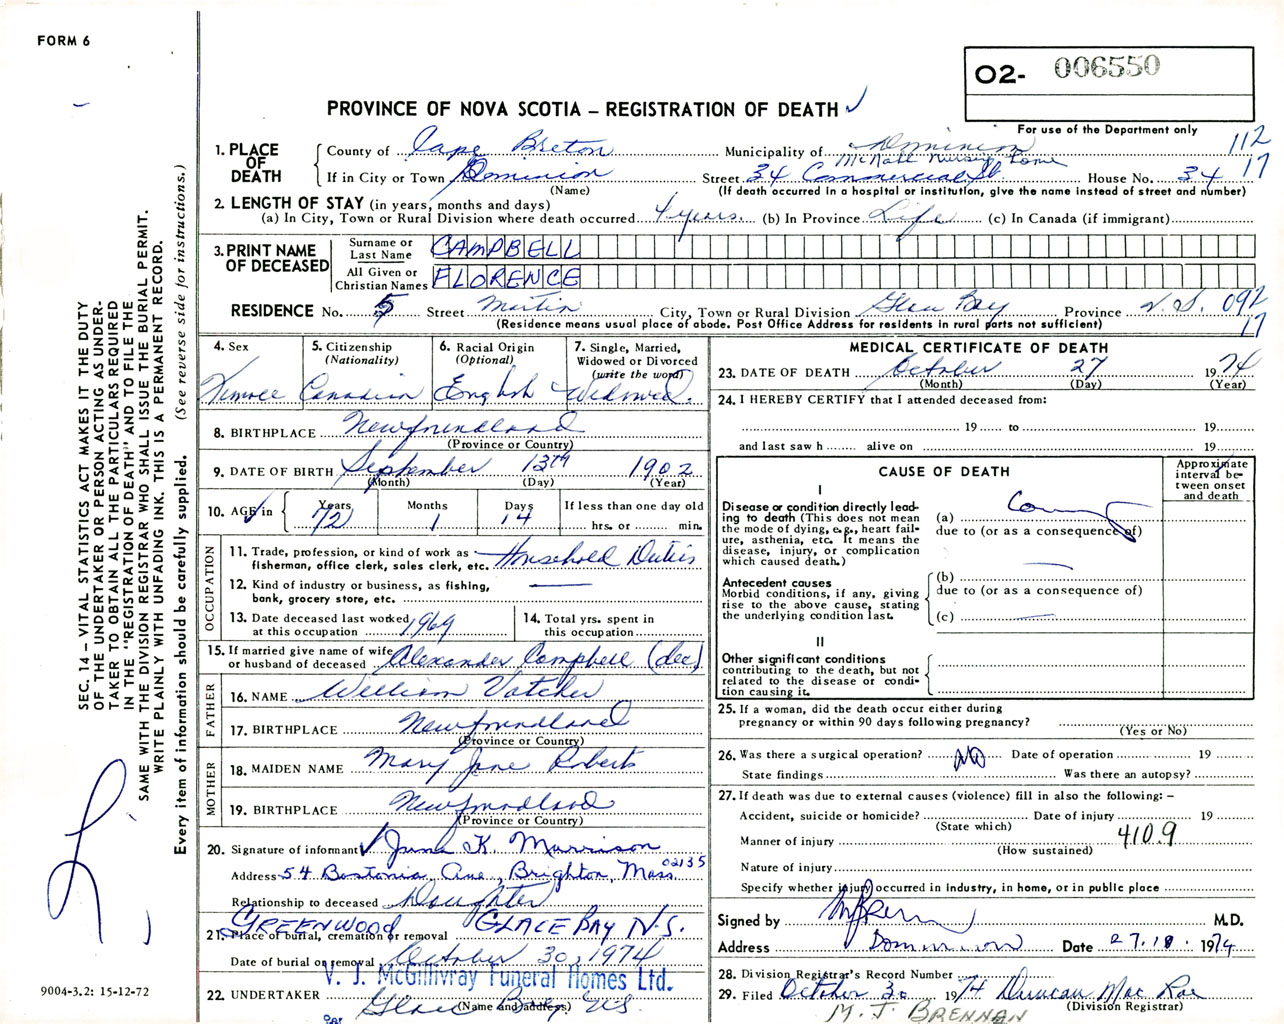 FORM 6
O2- 006550
PROVINCE OF NOVA SCOTIA – REGISTRATION OF DEATH
For use of the Department only
112
17
1. PLACE OF DEATH
County of Cape Breton Municipality of Dominion
McNall Nursing Home
If in City or Town Dominion Street 34 Commercial St House No. 34
(Name) (If death occurred in a hospital or institution, give the name instead of street and number)
2. LENGTH OF STAY (in years, months and days)
(a) In City, Town or Rural Division where death occurred 4 years. (b) In Province Life (c) In Canada (if immigrant)
3. PRINT NAME OF DECEASED
Surname or Last Name CAMPBELL
All Given or Christian Names FLORENCE
RESIDENCE No. 5 Street Martin City, Town or Rural Division Glace Bay Province N.S. 092
17
(Residence means usual place of abode. Post Office Address for residents in rural parts not sufficient)
4. Sex Female
5. Citizenship (Nationality) Canadian
6. Racial Origin (Optional) English
7. Single, Married, Widowed or Divorced (write the word) Widowed.
8. BIRTHPLACE Newfoundland
(Province or Country)
9. DATE OF BIRTH September 13th 1902
(Month) (Day) (Year)
10. AGE in Years 72 Months 1 Days 14 If less than one day old
hrs. or min.
OCCUPATION
11. Trade, profession, or kind of work as fisherman, office clerk, sales clerk, etc. Household Duties
12. Kind of industry or business, as fishing, bank, grocery store, etc.
13. Date deceased last worked at this occupation 1969
14. Total yrs. spent in this occupation
15. If married give name of wife or husband of deceased Alexander Campbell (dec)
FATHER
16. NAME William Vatcher
17. BIRTHPLACE Newfoundland
(Province or Country)
MOTHER
18. MAIDEN NAME Mary Jane Roberts
19. BIRTHPLACE Newfoundland
(Province or Country)
20. Signature of informant June K. Morrison
Address 54 Bostonia Ave, Brighton, Mass. 02135
Relationship to deceased Daughter
GREENWOOD GLACE BAY N.S.
21. Place of burial, cremation or removal
Date of burial or removal October 30, 1974
V. J. McGillivray Funeral Homes Ltd.
22. UNDERTAKER Glace Bay NS
(Name and address)
MEDICAL CERTIFICATE OF DEATH
23. DATE OF DEATH October 27 1974
(Month) (Day) (Year)
24. I HEREBY CERTIFY that I attended deceased from:
19 to 19
and last saw h alive on 19
CAUSE OF DEATH
Approximate interval between onset and death
I
Disease or condition directly leading to death (This does not mean the mode of dying, e.g., heart failure, asthenia, etc. It means the disease, injury, or complication which caused death.)
(a)
due to (or as a consequence of)
Antecedent causes
Morbid conditions, if any, giving rise to the above cause, stating the underlying condition last.
(b)
due to (or as a consequence of)
(c)
II
Other significant conditions
contributing to the death, but not related to the disease or condition causing it.
25. If a woman, did the death occur either during pregnancy or within 90 days following pregnancy?
(Yes or No)
26. Was there a surgical operation? NO Date of operation 19
State findings Was there an autopsy?
27. If death was due to external causes (violence) fill in also the following: –
Accident, suicide or homicide? Date of injury 19
(State which)
Manner of injury 410.9
(How sustained)
Nature of injury
Specify whether injury occurred in industry, in home, or in public place
Signed by M.D.
Address Dominion Date 27.10. 1974
28. Division Registrar's Record Number
29. Filed October 30 1974 Duncan Mac Rae
(Division Registrar)
M. J. BRENNAN
SEC. 14 – VITAL STATISTICS ACT MAKES IT THE DUTY
OF THE UNDERTAKER OR PERSON ACTING AS UNDER-
TAKER TO OBTAIN ALL THE PARTICULARS REQUIRED
IN THE "REGISTRATION OF DEATH" AND TO FILE THE
SAME WITH THE DIVISION REGISTRAR WHO SHALL ISSUE THE BURIAL PERMIT.
WRITE PLAINLY WITH UNFADING INK. THIS IS A PERMANENT RECORD.
Every item of information should be carefully supplied. (See reverse side for instructions.)
9004-3.2: 15-12-72